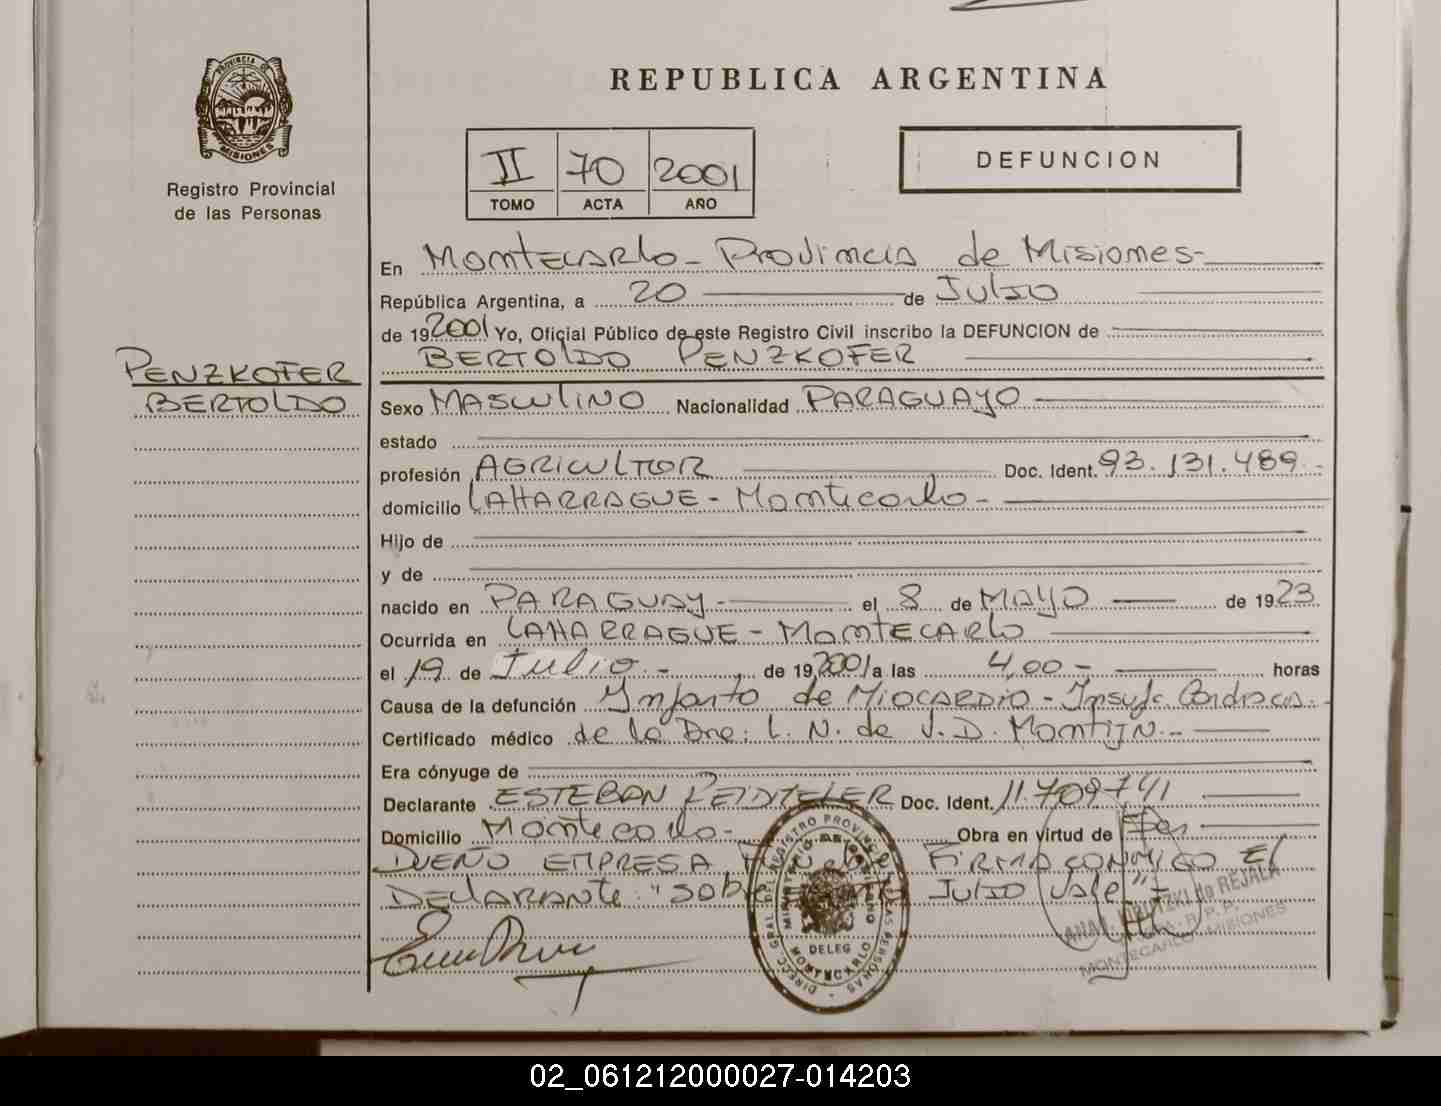 PROVINCIA DE
MISIONES
Registro Provincial
de las Personas
REPUBLICA ARGENTINA
II 70 2001
TOMO ACTA AÑO
DEFUNCION
En Montecarlo - Provincia de Misiones -
República Argentina, a 20 de Julio
de 19 2001 Yo, Oficial Público de este Registro Civil inscribo la DEFUNCION de
BERTOLDO PENZKOFER
PENZKOFER
BERTOLDO
Sexo MASCULINO Nacionalidad PARAGUAYO
estado
profesión AGRICULTOR Doc. Ident. 93.131.489.-
domicilio LAHARRAGUE - Montecarlo -
Hijo de
y de
nacido en PARAGUAY - el 8 de MAYO de 1923
Ocurrida en LAHARRAGUE - MONTECARLO
el 19 de Julio.- de 19 2001 a las 4,00 - horas
Causa de la defunción Infarto de MIOCARDIO - Insuf. Cardiaca.-
Certificado médico de la Dra: L. N. de V. D. Montijn.-
Era cónyuge de
Declarante ESTEBAN Doc. Ident. 11.709741
Domicilio Montecarlo - Obra en virtud de
DUEÑO EMPRESA FIRMA CONMIGO El
DEClARANTE: "Sobre Julio Vale"-
DIRECC. GRAL. DEL REGISTRO PROVINCIAL DE LAS PERSONAS
MINISTERIO DE GOBIERNO
DELEG
MONTECARLO
de REJALA
R. P. P.
MONTECARLO - MISIONES
02_061212000027-014203